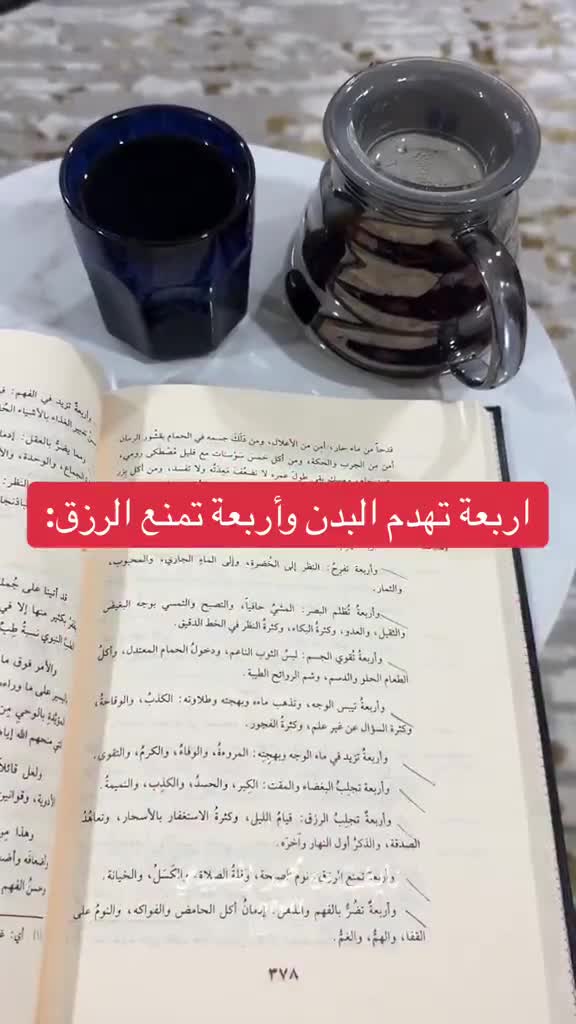 قدحاً من ماء حار، أمِن من الأعلال، ومن دَلَك جسمه في الحمام بقشور الرمان
أمن من الجرب والحكة، ومن أكل خمس سَوْسنات مع قليل مُصْطكى رومي،
طولَ عمره لا تضعُف مَعِدَتُه ولا تفسد، ومن أكل بزر
اربعة تهدم البدن وأربعة تمنع الرزق:
وأربعة تفرح: النظر إلى الخُضرة، وإلى الماءِ الجاري، والمحبوب،
والثمار.
وأربعةٌ تُظلم البصر: المشيُ حافياً، والتصبح والتمسي بوجه البغيض
والثقيل، والعدو، وكثرةُ البكاء، وكثرةُ النظر في الخط الدقيق.
وأربعةٌ تُقوي الجسم: لبسُ الثوب الناعم، ودخولُ الحمام المعتدل، وأكلُ
الطعام الحلو والدسم، وشم الروائح الطيبة.
وأربعةٌ تيبس الوجه، وتذهب ماءه وبهجته وطلاوته: الكذبُ، والوقاحةُ،
وكثرة السؤال عن غير علم، وكثرةُ الفجور.
وأربعةٌ تزيد في ماء الوجه وبهجتِه: المروءةُ، والوفاءُ، والكرمُ، والتقوى.
وأربعة تجلِبُ البغضاء والمقت: الكِبر، والحسدُ، والكذِب، والنميمةُ.
وأربعةٌ تجلِبُ الرزق: قيامُ الليل، وكثرةُ الاستغفار بالأسحار، وتعاهُدُ
الصدقة، والذكرُ أول النهار وآخرَه.
وأربعةٌ تمنع الرزق: نوم الصبحة، وقلةُ الصلاة، والكَسَلُ، والخيانة.
وأربعةٌ تضُرُّ بالفهم والذهن: إدمانُ أكل الحامض والفواكه، والنومُ على
القفا، والهمُّ، والغمُّ.
٣٧٨
وأربعةٌ تزيد في الفهم:
الغذاء بالأشياء
ومما يضرُّ بالعقل:
الجماع، والوحدة،
النظر:
قد أتينا على
منها إلا في
النبوي نسبةُ
والأمر فوق
بالوحي
منحهم الله
ولعل
الأدوية، وقوانين
وهذا
وأضعافه
وحسنُ الفهم
(١) أي: